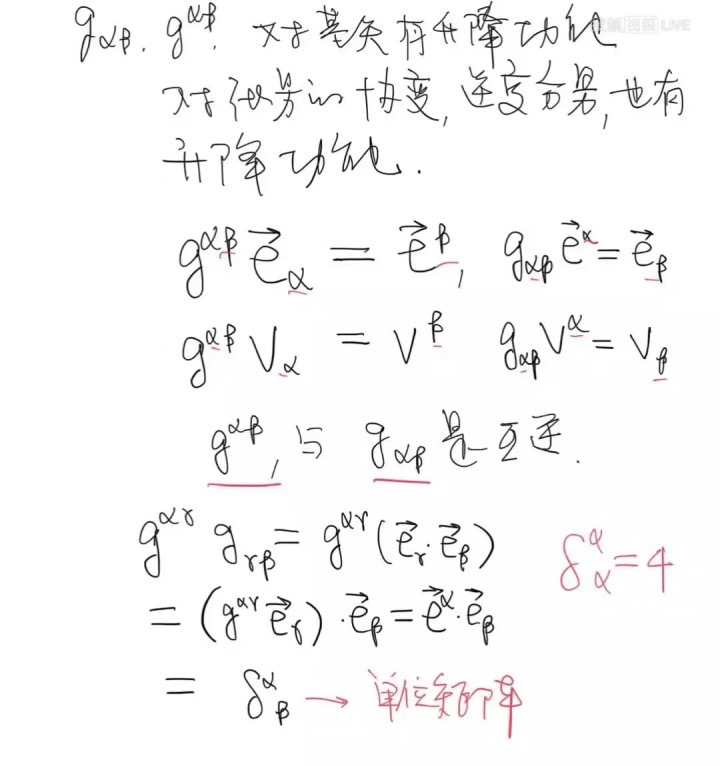 g_{αβ}, g^{αβ}, 对基矢有升降功能
对张量的协变,逆变分量,也有
升降功能.
g^{αβ} \vec{e}_α = \vec{e}^β, g_{αβ} \vec{e}^α = \vec{e}_β
g^{αβ} V_α = V^β g_{αβ} V^α = V_β
g^{αβ}, 与 g_{αβ} 是互逆.
g^{αγ} g_{γβ} = g^{αγ} (\vec{e}_γ · \vec{e}_β)
δ^α_α = 4
= (g^{αγ} \vec{e}_γ) · \vec{e}_β = \vec{e}^α · \vec{e}_β
= δ^α_β → 单位矩阵